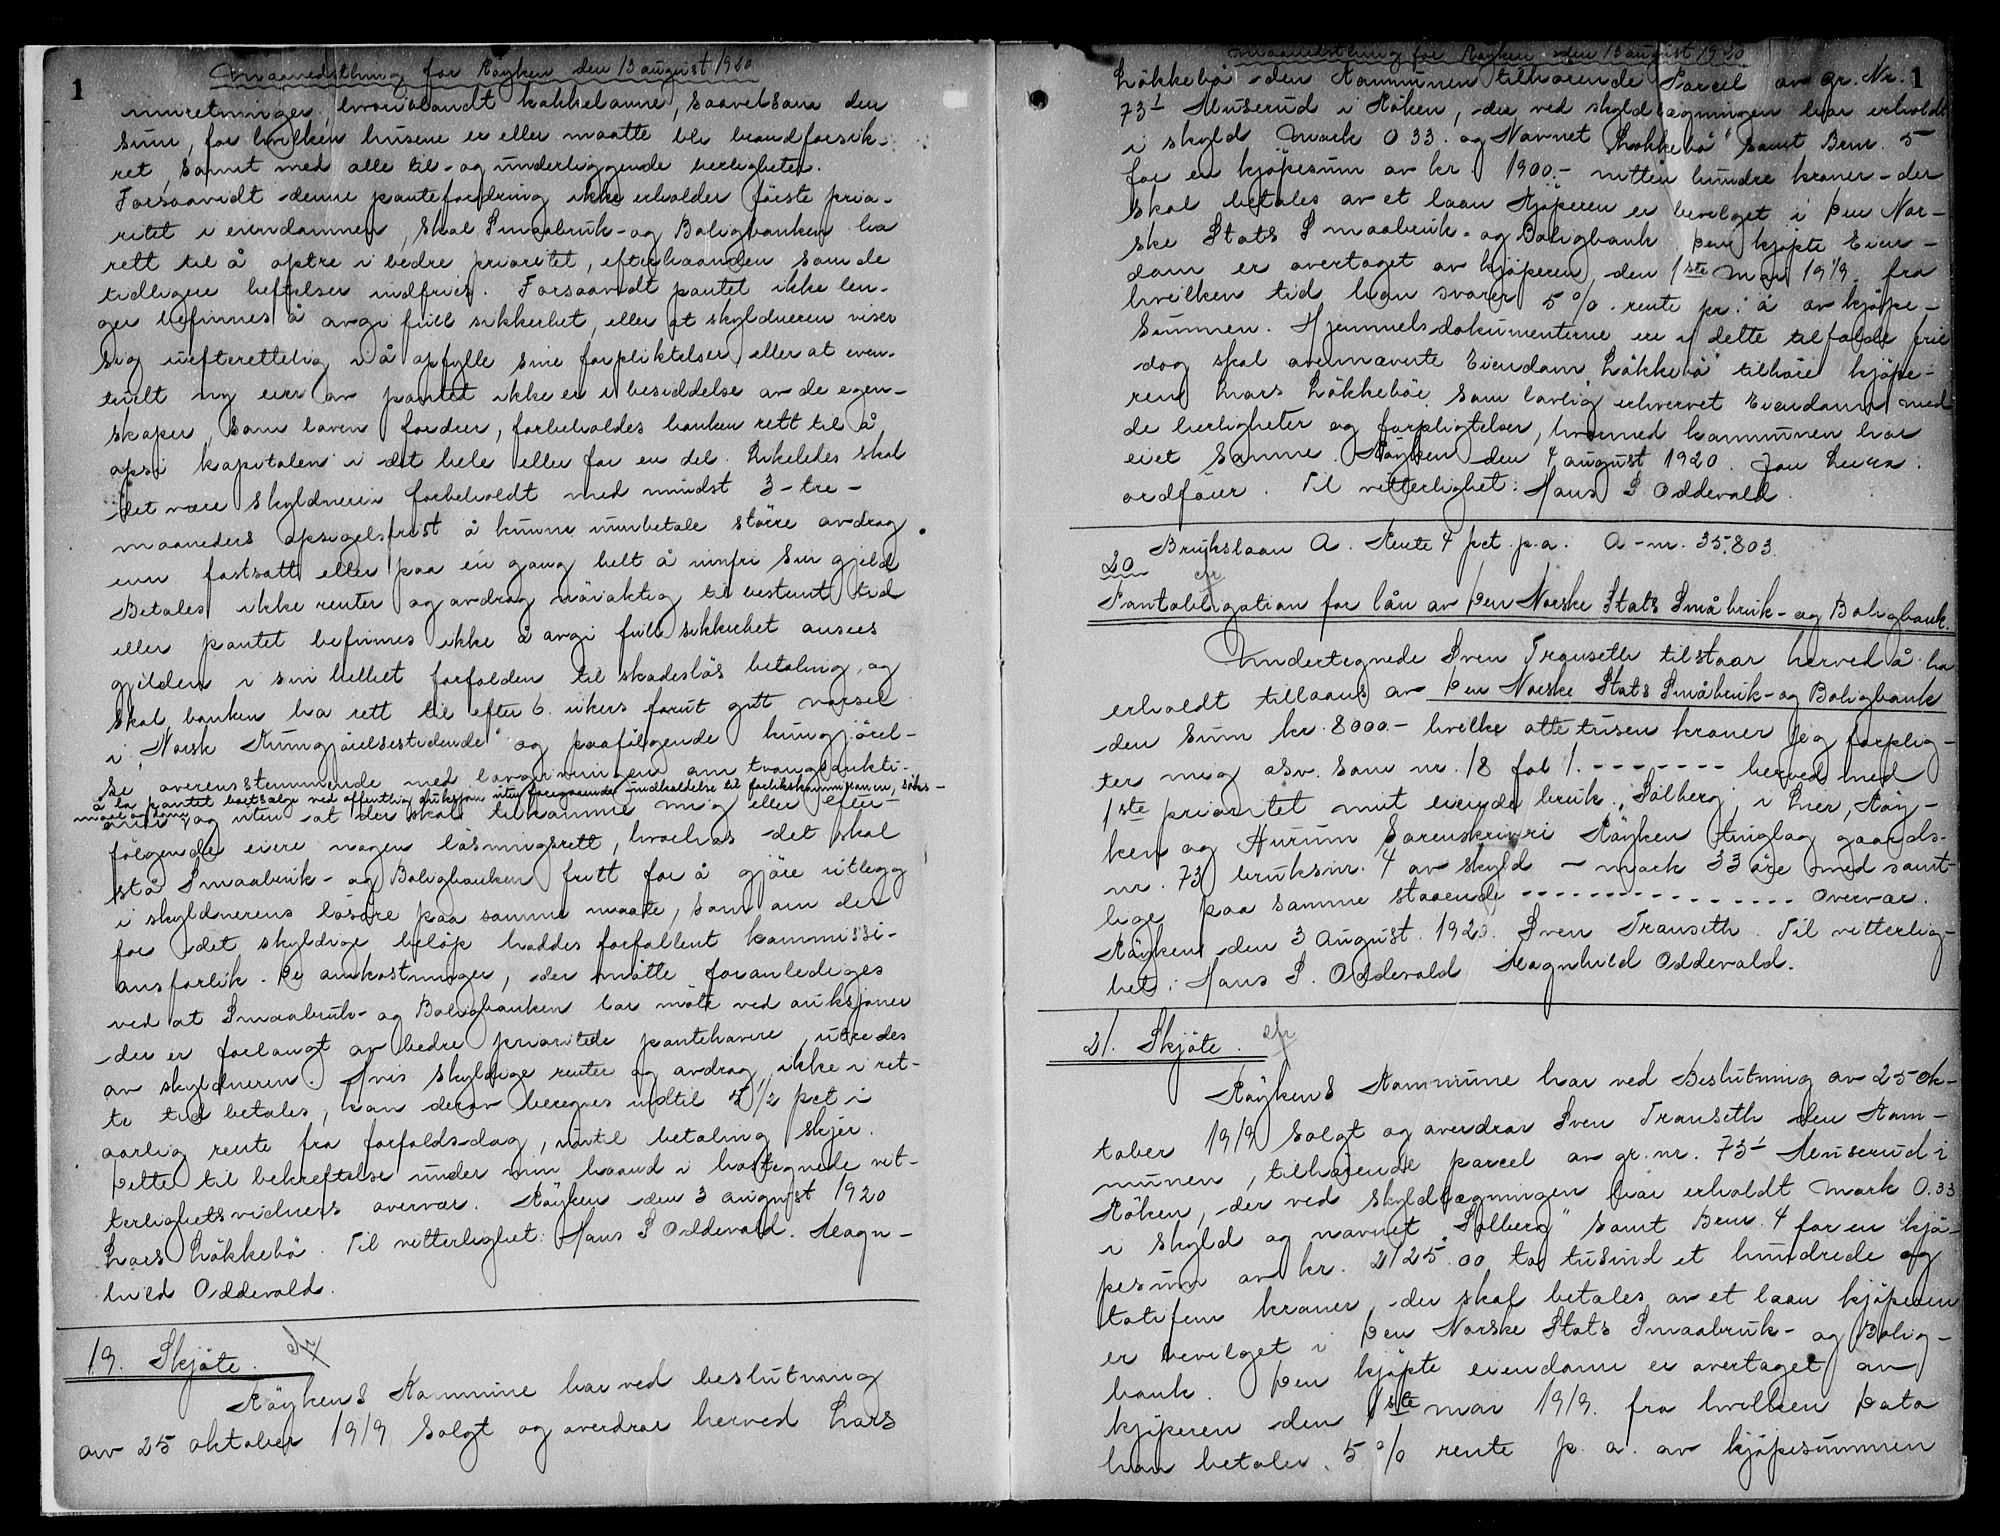 1
Maanedsthing for Røyken den 13 august 1920
innretninger, hvoriblandt kakkelovne, saavelsom den
sum, for hvilken husene er eller maatte bli brandforsik-
ret, samt med alle til- og underliggende herligheter.
Forsaavidt denne pantefordring ikke erholder første prio-
ritet i eiendommen, skal Smaabruk- og Boligbanken ha
rett til å optre i bedre prioritet, efterhaanden som de
tidligere heftelser indfries. Forsaavidt pantet ikke len-
ger befinnes å avgi full sikkerhet, eller at skyldneren viser
sig uefterettelig i å opfylle sine forpliktelser eller at even-
tuelt ny eier av pantet ikke er i besiddelse av de egen-
skaper, som loven fordrer, forbeholdes banken rett til å
opsi kapitalen i det hele eller for en del. Likeledes skal
det være skyldneren forbeholdt med mindst 3-tre-
maaneders opsigelsfrist å kunne innbetale større avdrag
enn fastsatt eller paa én gang helt å innfri sin gjeld
Betales ikke renter og avdrag nøiaktig til bestemt tid
eller pantet befinnes ikke å avgi full sikkerhet ansees
gjelden i sin helhet forfalden til skadesløs betaling, og
skal banken ha rett til efter 6. ukers forut gitt varsel
i "Norsk Kungjørelsestidende" og paafølgende kungjørel-
se overensstemmende med lovgivningen om tvangsaukti-
å la pantet bortsælge ved offentlig auksjon uten foregaaende indkaldelse til forlikskommisjonen, søks-
maal og dom
oner, og uten at der skal tilkomme mig eller efter-
følgende eiere nogen løsningsrett, hvorhos det skal
stå Smaabruk- og Boligbanken fritt for å gjøre utlegg
i skyldnerens løsøre paa samme maate, som om der
for det skyldige beløp haddes forfallent kommissi-
onsforlik. De omkostninger, der måtte foranlediges
ved at Smaabruk- og Boligbanken lar møte ved auksjoner
der er forlangt av bedre prioritede panthavere, utredes
av skyldneren. Hvis skyldige renter og avdrag ikke i ret-
te tid betales, kan derav beregnes indtil 5 1/2 pct i
aarlig rente fra forfaldsdag, inntil betaling skjer.
Dette til bekreftelse under min haand i hostegnede vit-
terlighetsvidners overvær. Røyken den 3 august 1920
Lars Løkkebö. Til vitterlighet: Hans S Oddevald. Magn-
hild Oddevald.
19. Skjöte.
Røykens Kommune har ved beslutning
av 25 oktober 1919 solgt og overdrar herved Lars
1
Maanedsthing for Røyken den 13 august 1920
Løkkebö den Kommunen tilhørende Parcel av gr. Nr.
73¹ Muserud i Røken, der ved skyldlægningen har erholdt
i skyld Mark 0 33. og Navnet "Løkkebö" samt Brnr. 5
for en kjøpesum av kr 1900.- nitten hundre kroner - der
skal betales av et laan Kjøperen er bevilget i Den Nor-
ske Stats Smaabruk- og Boligbank. Den kjøpte Eien-
dom er overtaget av kjøperen den 1ste Mai 1919. fra
hvilken tid han svarer 5 % rente pr. å av kjøpe-
summen. Hjemmelsdokumenterne er i dette tilfælde frie
dog skal ovennævnte Eiendom "Løkkebö" tilhøre kjøpe-
ren Lars Løkkeböe som lovlig erhvervet Eiendom med
de herligheter og forpligtelser, hvormed kommunen har
eiet samme. Røyken den 4 august 1920.
ordfører. Til vitterlighet: Hans S Oddevald.
20 Brukslaan A. Rente 4 pct. p.a. A-nr. 35.803.
Pantobligation for lån av Den Norske Stats Småbruk- og Boligbank.
Undertegnede Sven Transeth tilstaar herved å ha
erholdt tillaans av Den Norske Stats Småbruk- og Boligbank
den sum kr. 8000.- hvilke otte tusen kroner jeg forplig-
ter mig osv. som nr. 18 fol 1. - - - - - - - - herved med
1ste prioritet mit eiende bruk "Solberg", i Lier, Røy-
ken og Hurum Sorenskriveri Røyken tinglag gaards-
nr. 73 bruksnr. 4 av skyld - mark 33 øre med samt-
lige paa samme staaende - - - - - - - - - - - - - - - overvær.
Røyken den 3 August. 1920. Sven Transeth. Til vitterlig-
het: Hans S. Oddevald Magnhild Oddevald.
21. Skjöte.
Røykens Kommune har ved Beslutning av 25 Ok-
tober 1919 solgt og overdrar Sven Transeth den Kom-
munen, tilhørende parcel av gr. nr. 73¹ Muserud i
Røken, der ved skyldlægningen har erholdt Mark 0.33
i skyld og navnet "Solberg" samt Brnr. 4 for en kjø-
pesum av kr. 2125.00 to tusind et hundrede og
totifem kroner, der skal betales av et laan kjøperen
er bevilget i Den Norske Stats Smaabruk- og Bolig-
bank. Den kjøpte eiendom er overtaget av
kjøperen den 1ste mai 1919. fra hvilken Dato
han betaler 5 % rente p. a. av kjøpesummen